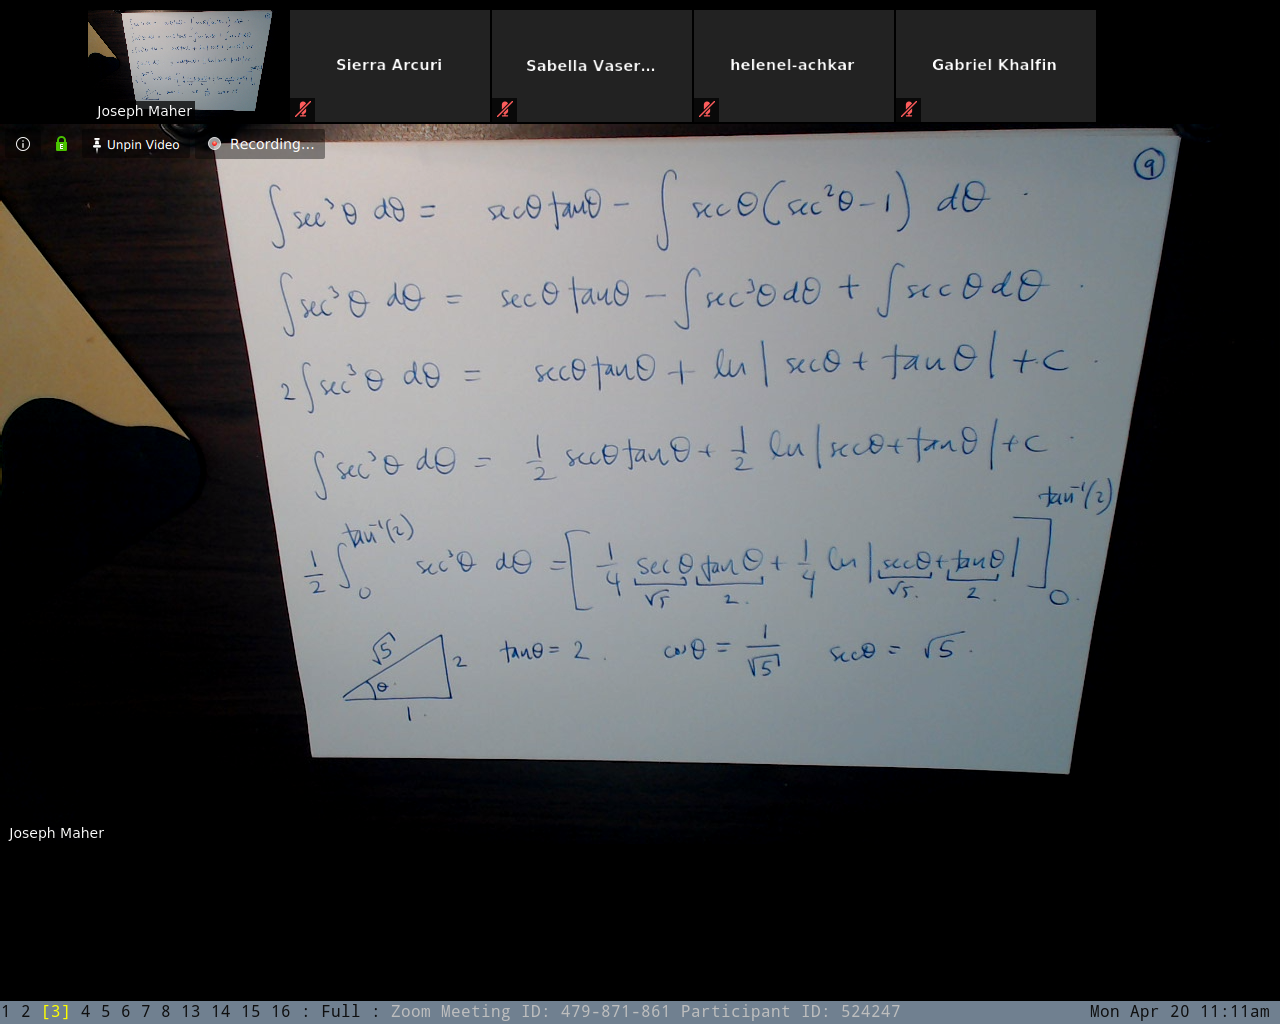 Joseph Maher
Sierra Arcuri
Sabella Vaser...
helenel-achkar
Gabriel Khalfin
Unpin Video
Recording...
9
∫ sec³θ dθ = secθ tanθ − ∫ secθ(sec²θ − 1) dθ
∫ sec³θ dθ = secθ tanθ − ∫ sec³θ dθ + ∫ secθ dθ
2∫ sec³θ dθ = secθ tanθ + ln|secθ + tanθ| + c
∫ sec³θ dθ = 1/2 secθ tanθ + 1/2 ln|secθ + tanθ| + c
1/2 ∫₀^{tan⁻¹(2)} sec³θ dθ = [1/4 secθ tanθ + 1/4 ln|secθ + tanθ|]₀^{tan⁻¹(2)}
√5 2 √5 2
√5 2 θ 1 tanθ = 2 cosθ = 1/√5 secθ = √5
Joseph Maher
1 2 [3] 4 5 6 7 8 13 14 15 16 : Full : Zoom Meeting ID: 479-871-861 Participant ID: 524247 Mon Apr 20 11:11am